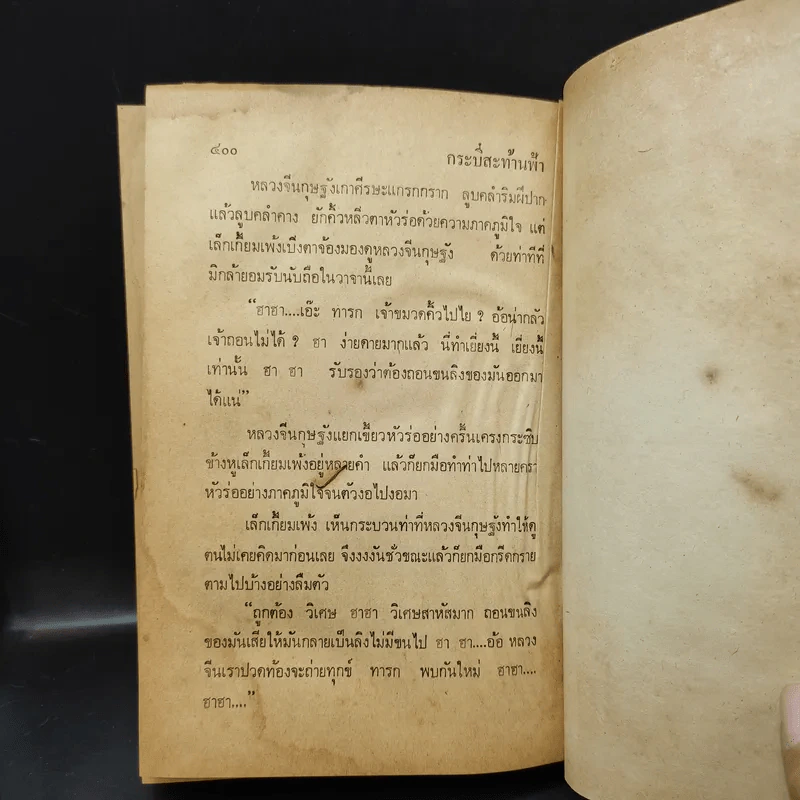 ๔๐๐
กระบี่สะท้านฟ้า
หลวงจีนกุษฐังเกาศีรษะแกรกกราก ลูบคลำริมฝีปาก
แล้วลูบคลำคาง ยักคิ้วหลิ่วตาหัวร่อด้วยความภาคภูมิใจ แต่
เล็กเกี้ยมเพ้งเบิ่งตาจ้องมองดูหลวงจีนกุษฐัง ด้วยท่าทีที่
มิกล้ายอมรับนับถือในวาจานี้เลย
“ฮาฮา....เอ๊ะ ทารก เจ้าขมวดคิ้วไปไย ? อ้อน่ากลัว
เจ้าถอนไม่ได้ ? ฮา ง่ายดายมากแล้ว นี่ทำเยี่ยงนี้ เยี่ยงนี้
เท่านั้น ฮา ฮา รับรองว่าต้องถอนขนลิงของมันออกมา
ได้แน่”
หลวงจีนกุษฐังแยกเขี้ยวหัวร่ออย่างครื้นเครงกระซิบ
ข้างหูเล็กเกี้ยมเพ้งอยู่หลายคำ แล้วก็ยกมือทำท่าไปหลายครา
หัวร่ออย่างภาคภูมิใจจนตัวงอไปงอมา
เล็กเกี้ยมเพ้ง เห็นกระบวนท่าที่หลวงจีนกุษฐังทำให้ดู
ตนไม่เคยคิดมาก่อนเลย จึงงงงันชั่วขณะแล้วก็ยกมือกรีดกราย
ตามไปบ้างอย่างลืมตัว
“ถูกต้อง วิเศษ ฮาฮา วิเศษสาหัสมาก ถอนขนลิง
ของมันเสียให้มันกลายเป็นลิงไม่มีขนไป ฮา ฮา....อ้อ หลวง
จีนเราปวดท้องจะถ่ายทุกข์ ทารก พบกันใหม่ ฮาฮา....
ฮาฮา....”